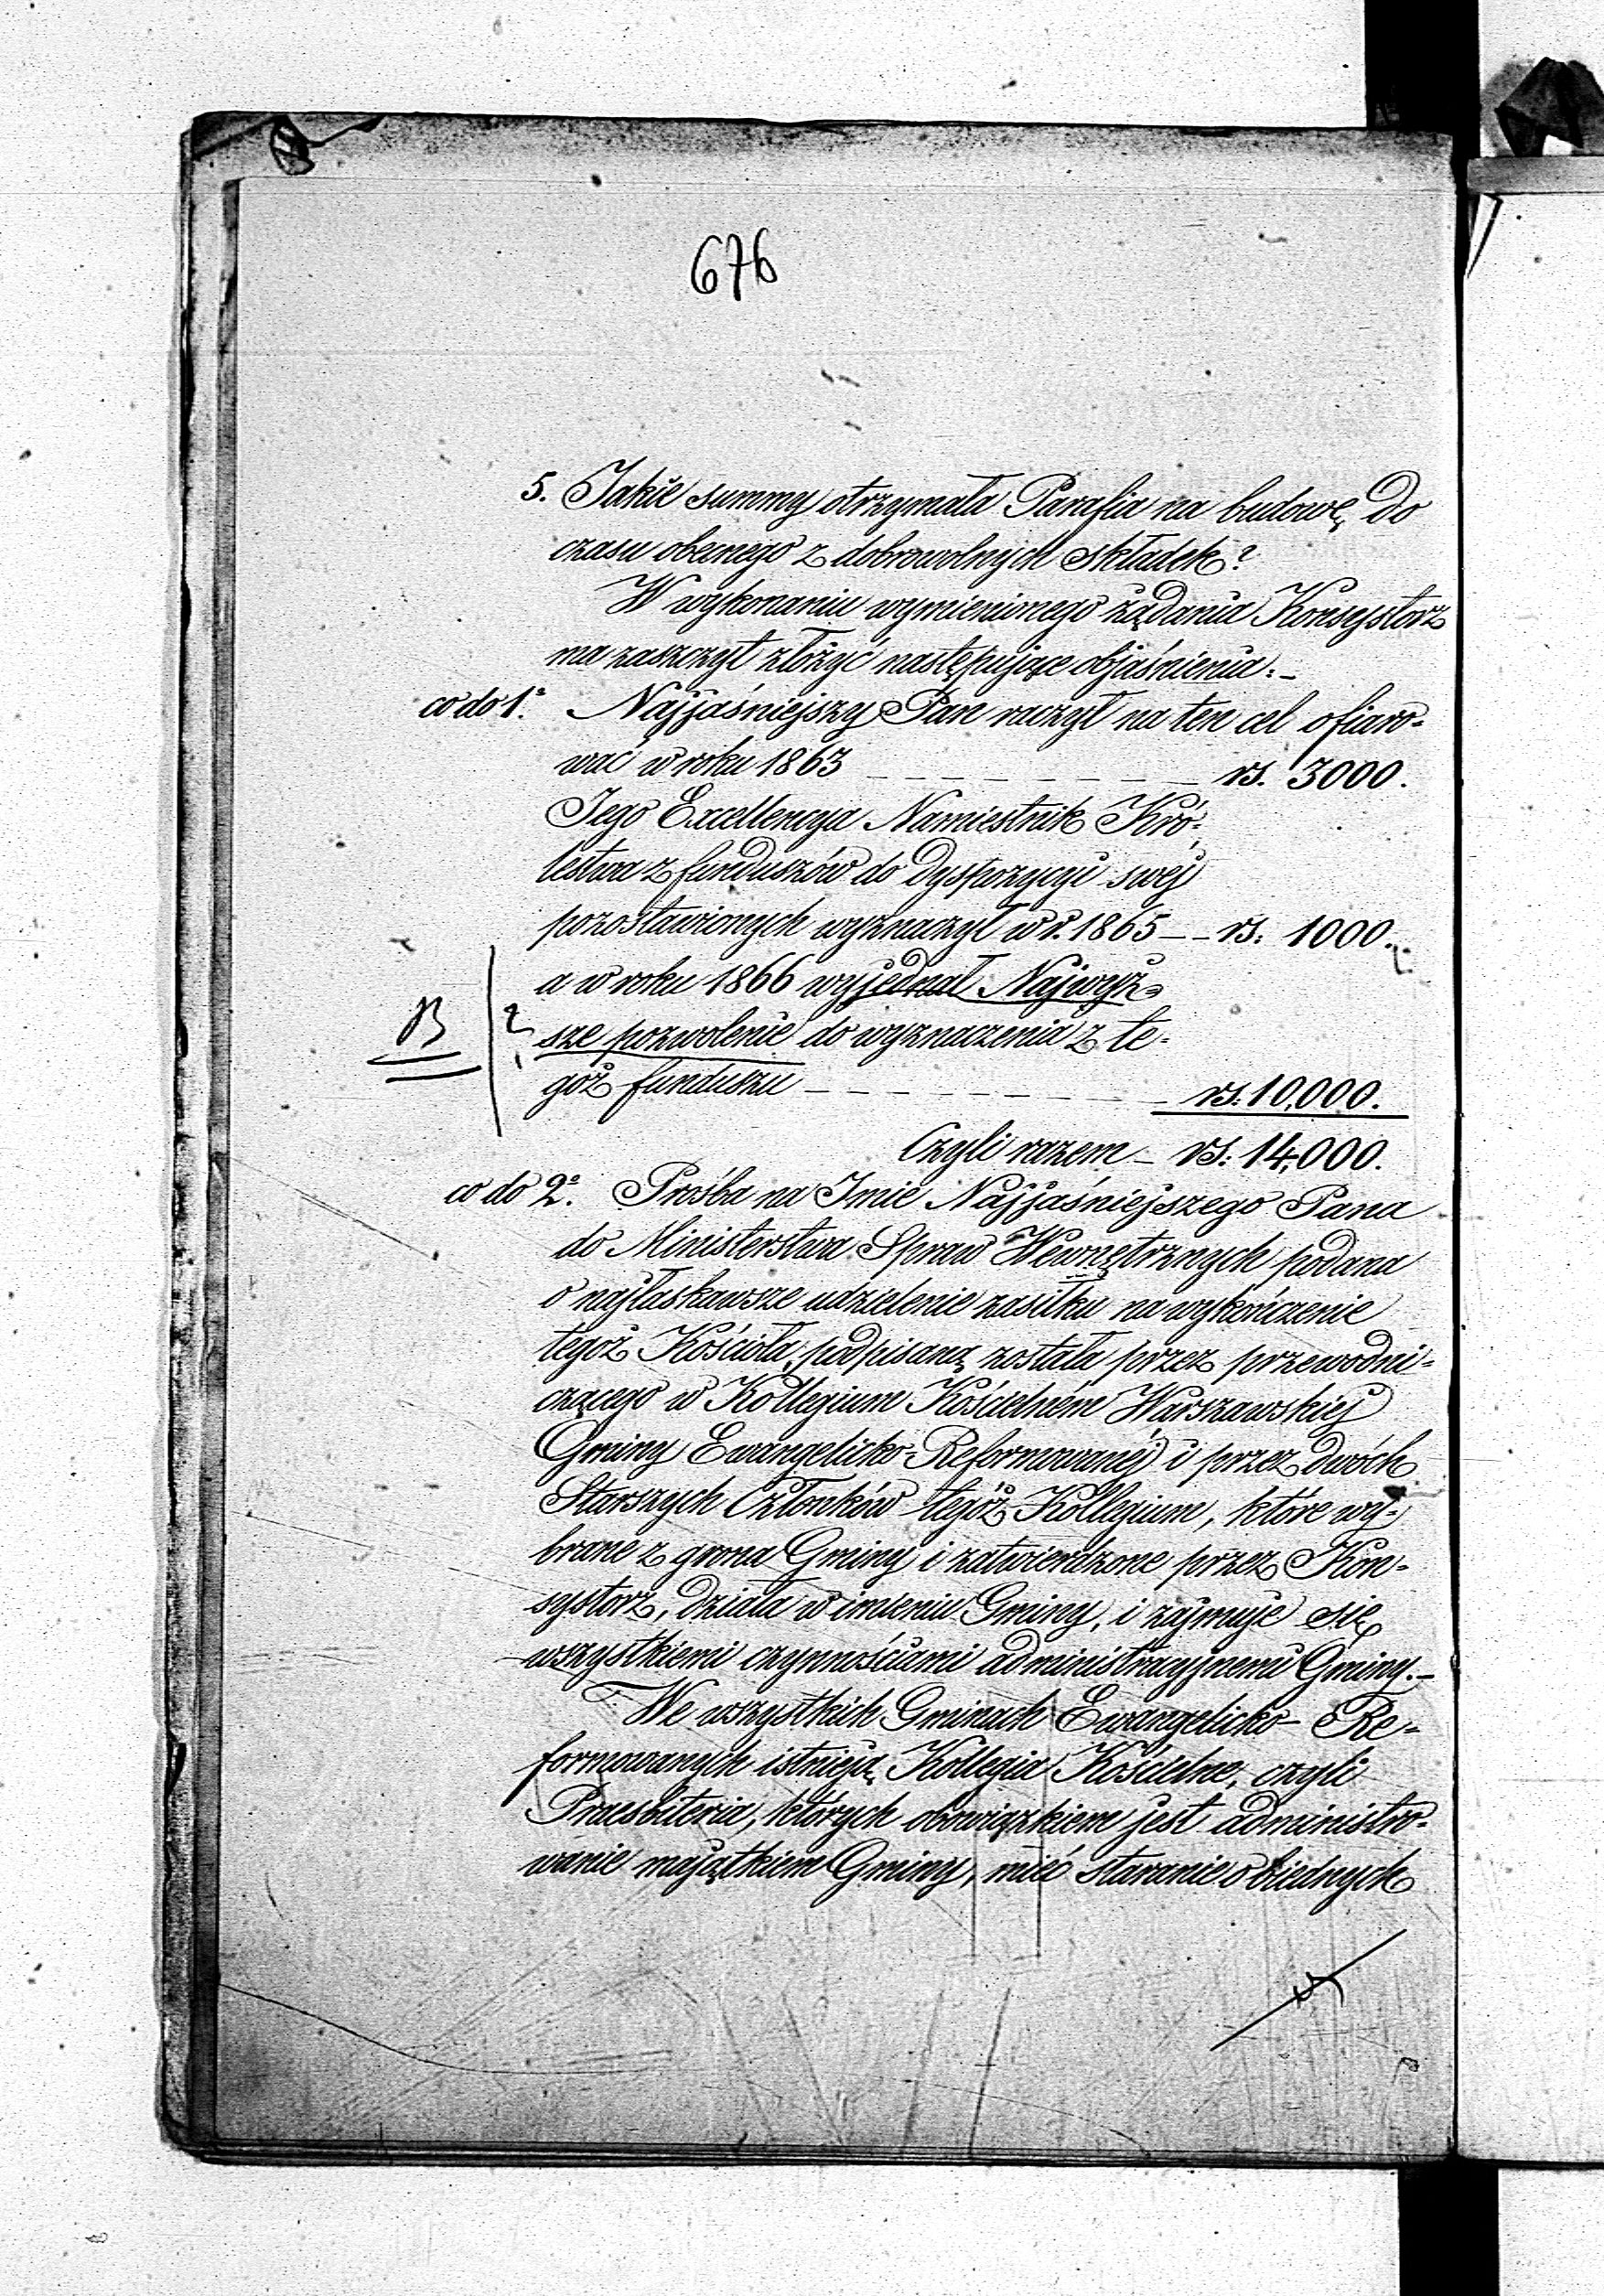 676
5. Jakie summy otrzymała Parafia na budowę do
czasu obecnego z dobrowolnych składek?
W wykonaniu wymienionego żądania Konsystorz
ma zaszczyt złożyć następujące objaśnienia:-
co do 1º. Najjaśniejszy Pan raczył na ten cel ofiaro-
wać w roku 1863 - - - - - - - - rs. 3000.
Jego Excellencya Namiestnik Kró-
lestwa z funduszów do dyspozycyi swéj
pozostawionych wyznaczył w r. 1865 - - rs: 1000.
a w roku 1866 wyjednał Najwyż-
B ? sze pozwolenie do wyznaczenia z te-
goż funduszu - - - - - - - - - rs: 10,000.
Czyli razem - rs: 14,000.
co do 2º. Prośba na Imie Najjaśniejszego Pana
do Ministerstwa Spraw Wewnętrznych podana
o najłaskawsze udzielenie zasiłku na wykończenie
tegoż Kościoła, podpisaną została przez przewodni-
czącego w Kollegium Kościelném Warszawskiej
Gminy Ewangelicko-Reformowanéj i przez dwóch
Starszych Członków tegoż Kollegium, które wy-
brane z grona Gminy i zatwierdzone przez Kon-
systorz, działa w imieniu Gminy, i zajmuje się
wszystkiemi czynnościami administracyjnemi Gminy.-
We wszystkich Gminach Ewangelicko-Re-
formowanych istnieją Kollegia Kościelne, czyli
Praesbiteria, których obowiązkiem jest administro-
wanie majątkiem Gminy, mieć staranie o biednych